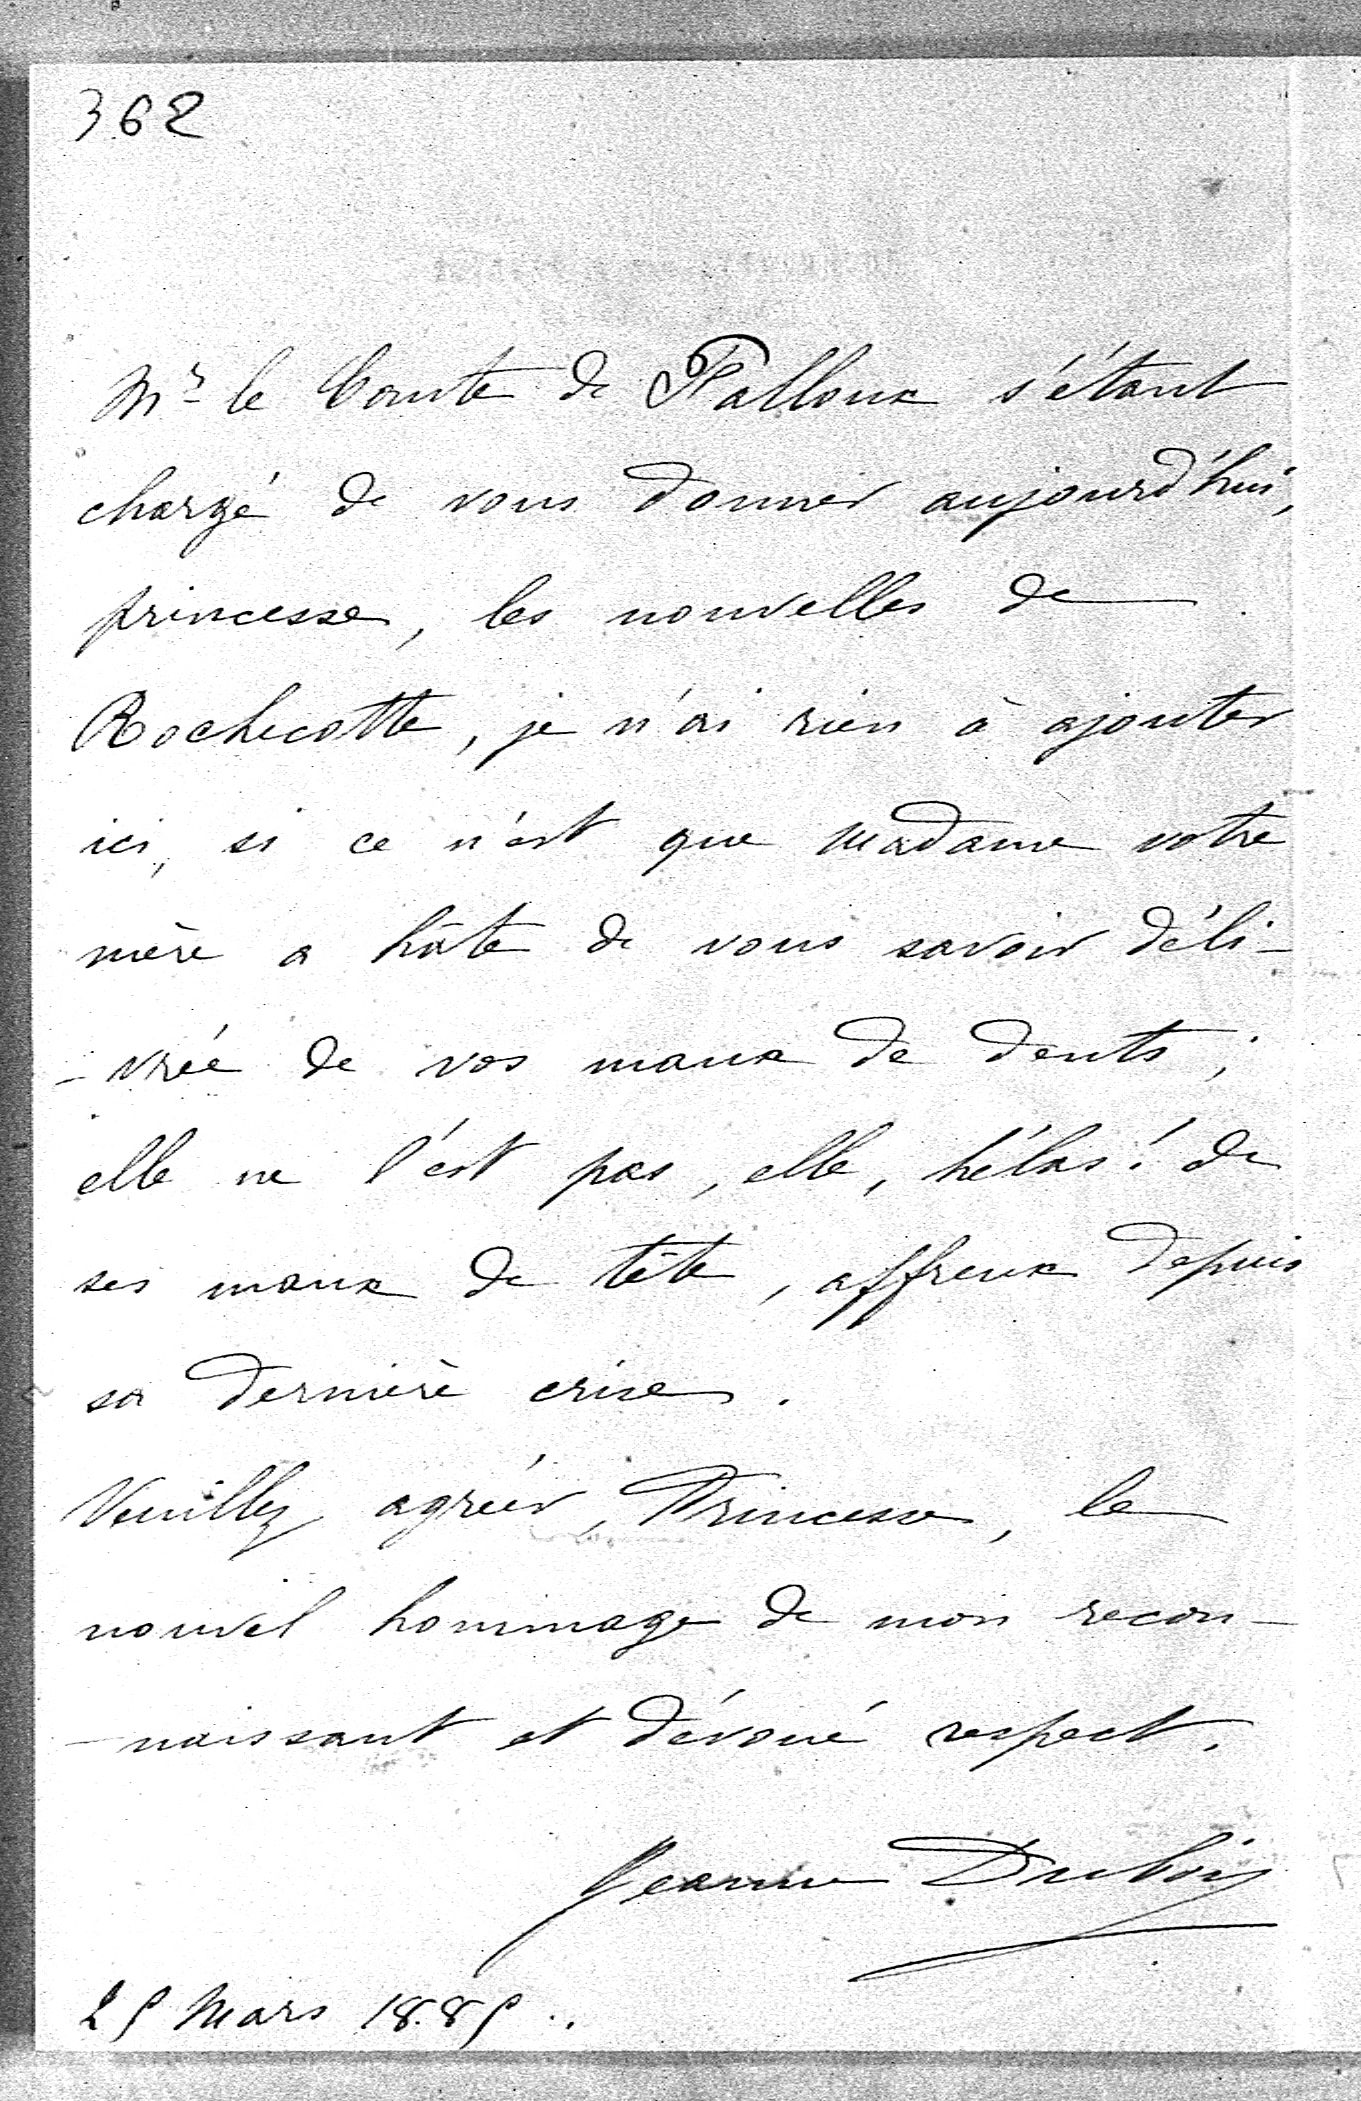 362
Mr le Comte de Falloux s'étant
chargé de vous donner aujourd'hui,
princesse, les nouvelles de
Rochecotte, je n'ai rien à ajouter
ici, si ce n'est que Madame votre
mère a hâte de vous savoir déli-
-vrée de vos maux de dents ;
elle ne l'est pas, elle, hélas ! de
ses maux de tête, affreux depuis
sa dernière crise.
Veuillez agréer, Princesse, le
nouvel hommage de mon recon-
-naissant et dévoué respect.
Jeanne Dubois
25 Mars 1885.